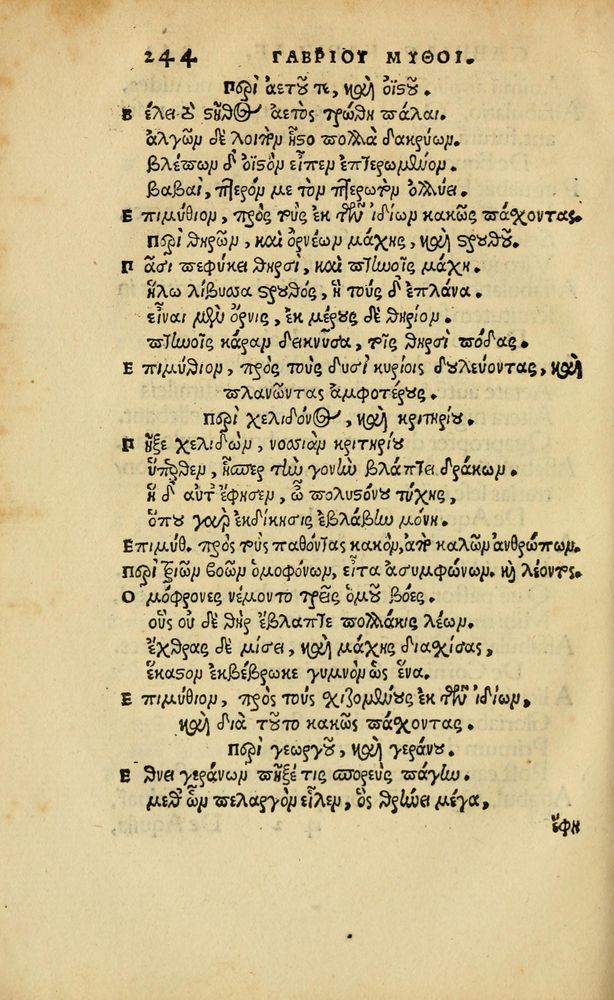 244 ΓΑΒΡΙΟΥ ΜΥΘΟΙ.
Περὶ ἀετοῦ τε, καὶ ὀϊστοῦ.
Βέλει δὲ στῆθος ἀετὸς τρώθη πάλαι.
ἀλγῶν δὲ λοιπὸν ἧστο πολλὰ δακρύων.
βλέπων δ' ὀϊστὸν εἶπεν ἐπτερωμένον.
βαβαί, πτερόν με τὸν πτερωτὸν ὀλλύει.
Ἐπιμύθιον, πρὸς τοὺς ἐκ τῶν ἰδίων κακῶς πάχοντας.
Περὶ θηρῶν, καὶ ὀρνέων μάχης, καὶ στρουθοῦ.
Πᾶσι πεφύκει θηρσὶ, καὶ πτηνοῖς μάχη.
ἥλω λίβυσσα στρουθός, ἣ τοὺς δ' ἐπλάνα.
εἶναι μὲν ὄρνις, ἐκ μέρους δὲ θηρίον.
πτηνοῖς κάραν δεικνῦσα, τοῖς θηρσὶ πόδας.
Ἐπιμύθιον, πρὸς τοὺς δυσὶ κυρίοις δουλεύοντας, καὶ
πλανῶντας ἀμφοτέρους.
Περὶ χελιδόνος, καὶ κριτηρίου.
Πῆξε χελιδὼν, νοσσιὰν κριτηρίου
ὕπερθεν, ἧσπερ τὴν γονὴν βλάπτει δράκων.
ἣ δ' αὖτ' ἔφησεν, ὦ πολυστόνου τύχης,
ὅπου γὰρ ἐκδίκησις ἐβλάβην μόνη.
Ἐπιμύθ. πρὸς τοὺς παθόντας κακὸν, ἀπὸ καλῶν ἀνθρώπων.
Περὶ τριῶν βοῶν ὁμοφόνων, εἶτα ἀσυμφώνων. καὶ λέοντος.
Ὁμόφρονες νέμοντο τρεῖς ὁμοῦ βόες.
οὓς οὐ δὲ θὴρ ἔβλαπτε πολλάκις λέων.
ἔχθρας δὲ μίσει, καὶ μάχης διαχίσας,
ἕκαστον ἐκβέβρωκε γυμνὸν ὡς ἕνα.
Ἐπιμύθιον, πρὸς τοὺς χιζομένους ἐκ τῶν ἰδίων,
καὶ διὰ τοῦτο κακῶς πάχοντας.
Περὶ γεωργοῦ, καὶ γεράνου.
Ἔθνει γεράνων πῆξέ τις σπορεὺς πάγην.
μεθ' ὧν πελαργὸν εἷλεν, ὃς θρήνει μέγα,
ἔφη